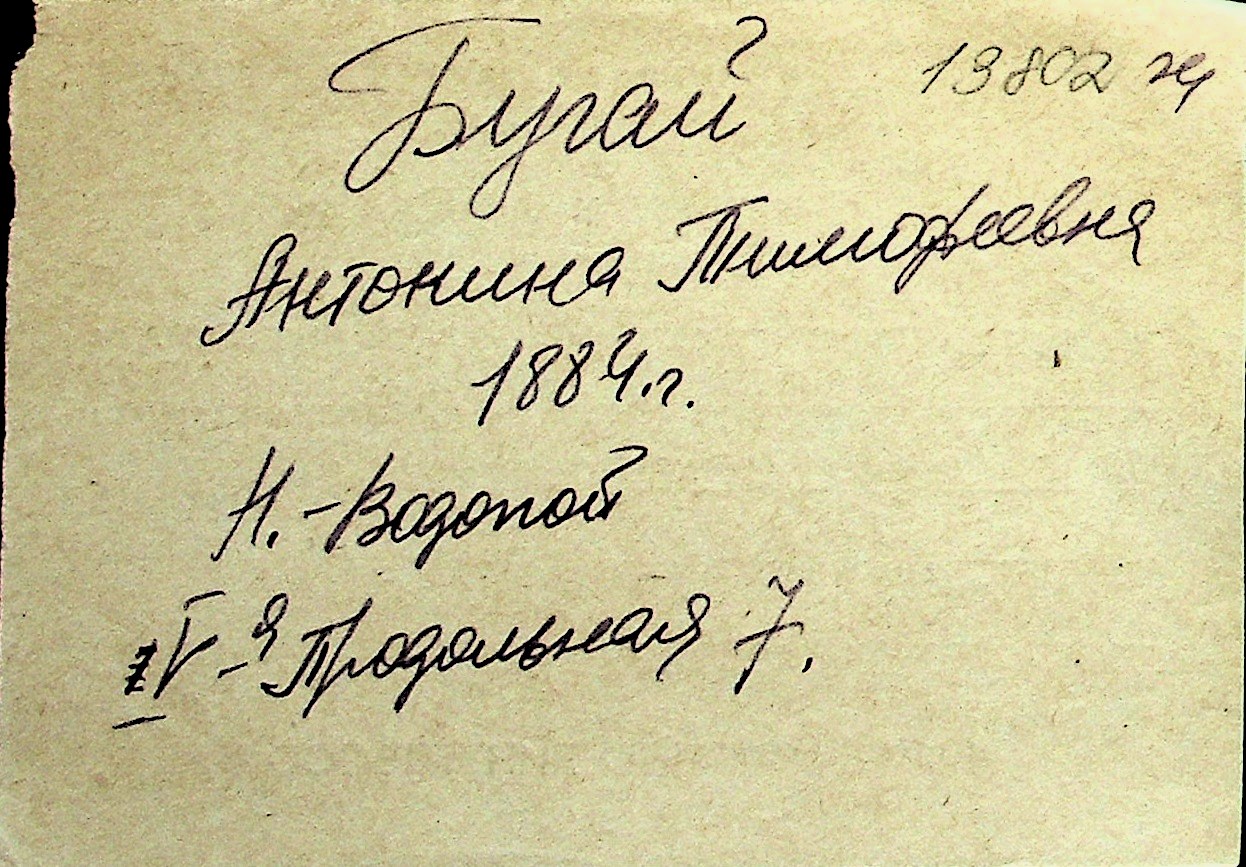 13802
Бугай
Антонина Тимофеевна
1884.г.
Н.-Водопой
IV-я Продольная 7.